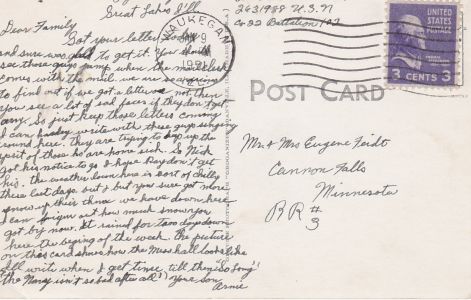 Great Lakes Ill
Dear Family
Got your letter today
and sure was glad to get it. You should
see those guys jump when the mail clerk
comes with the mail. we are searching
to find out if we got a letter or not then
you see a lot of sad faces if they don't get
any. So just keep those letters coming
I can hardly write with these guys singing
around here. they are trying to keep up the
spirit of those who are home sick. So Nick
got his notice to go I hope Ray don't get
his. the weather down here is sort of chilly
these last days but you sure got more
snow up their than we have down here
I can figure out how much snow you
got by now. It raind for two days down
here the begining of the week. the picture
on this card shows how the Mess hall looks like
Ill write when I get time till then So long
the Navy isn't so bad after all Your son
Arnie
2631988 U.S.N
Co 32 Battalion
WAUKEGAN
9
UNITED STATES
POSTAGE
3 CENTS 3
POST CARD
Mr & Mrs Eugene Fiedt
Cannon Falls
Minnesota
RR #
3